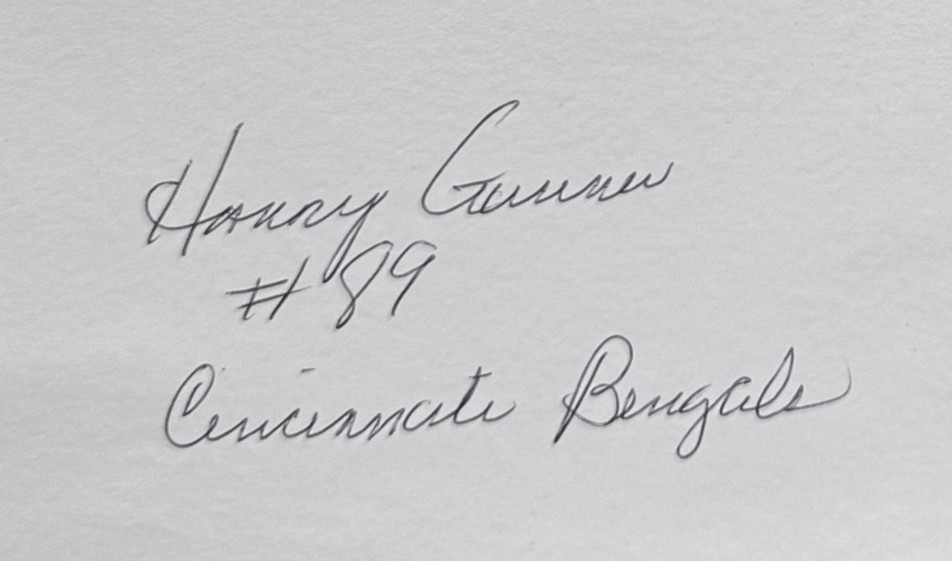 Harry Gunner
#89
Cincinnati Bengals